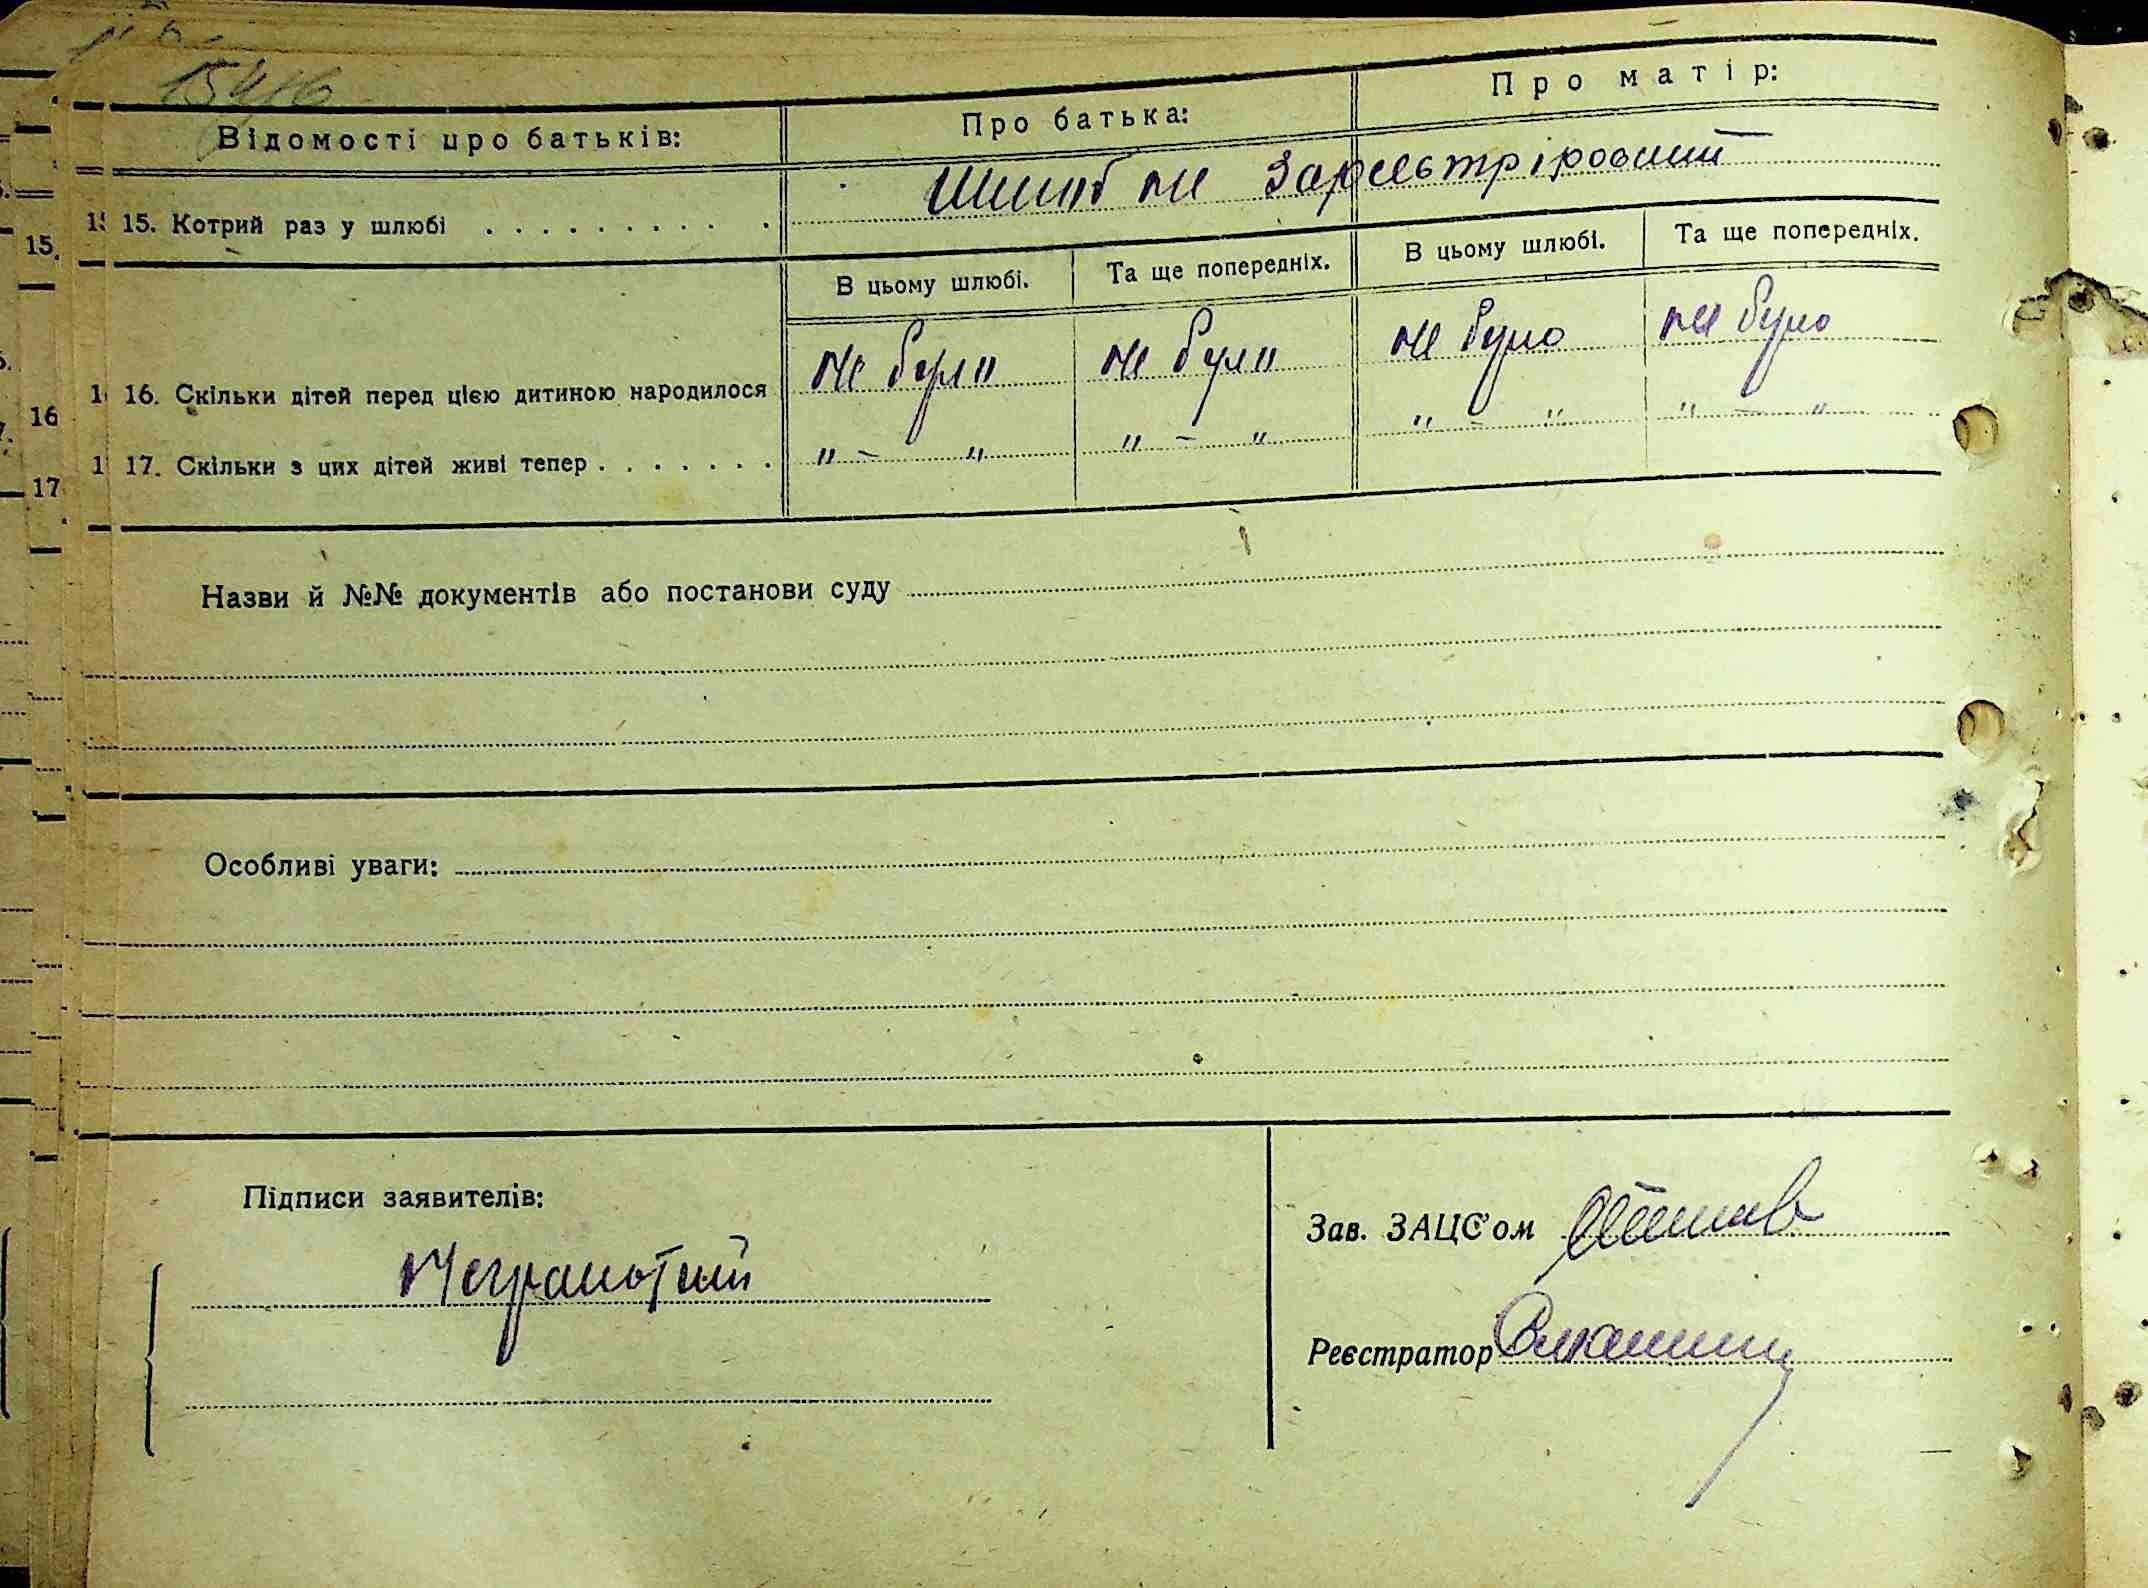 Відомості про батьків:
Про батька:
Про матір:
15. Котрий раз у шлюбі
Шлюб не зареєстріровний
В цьому шлюбі.
Та ще попередніх.
В цьому шлюбі.
Та ще попередніх.
16. Скільки дітей перед цією дитиною народилося
не були
не були
не було
не було
17. Скільки з цих дітей живі тепер
" – "
" – "
" – "
" – "
Назви й №№ документів або постанови суду
Особливі уваги:
Підписи заявителів:
Неграмотний
Зав. ЗАЦС'ом
Реєстратор
15
16
17